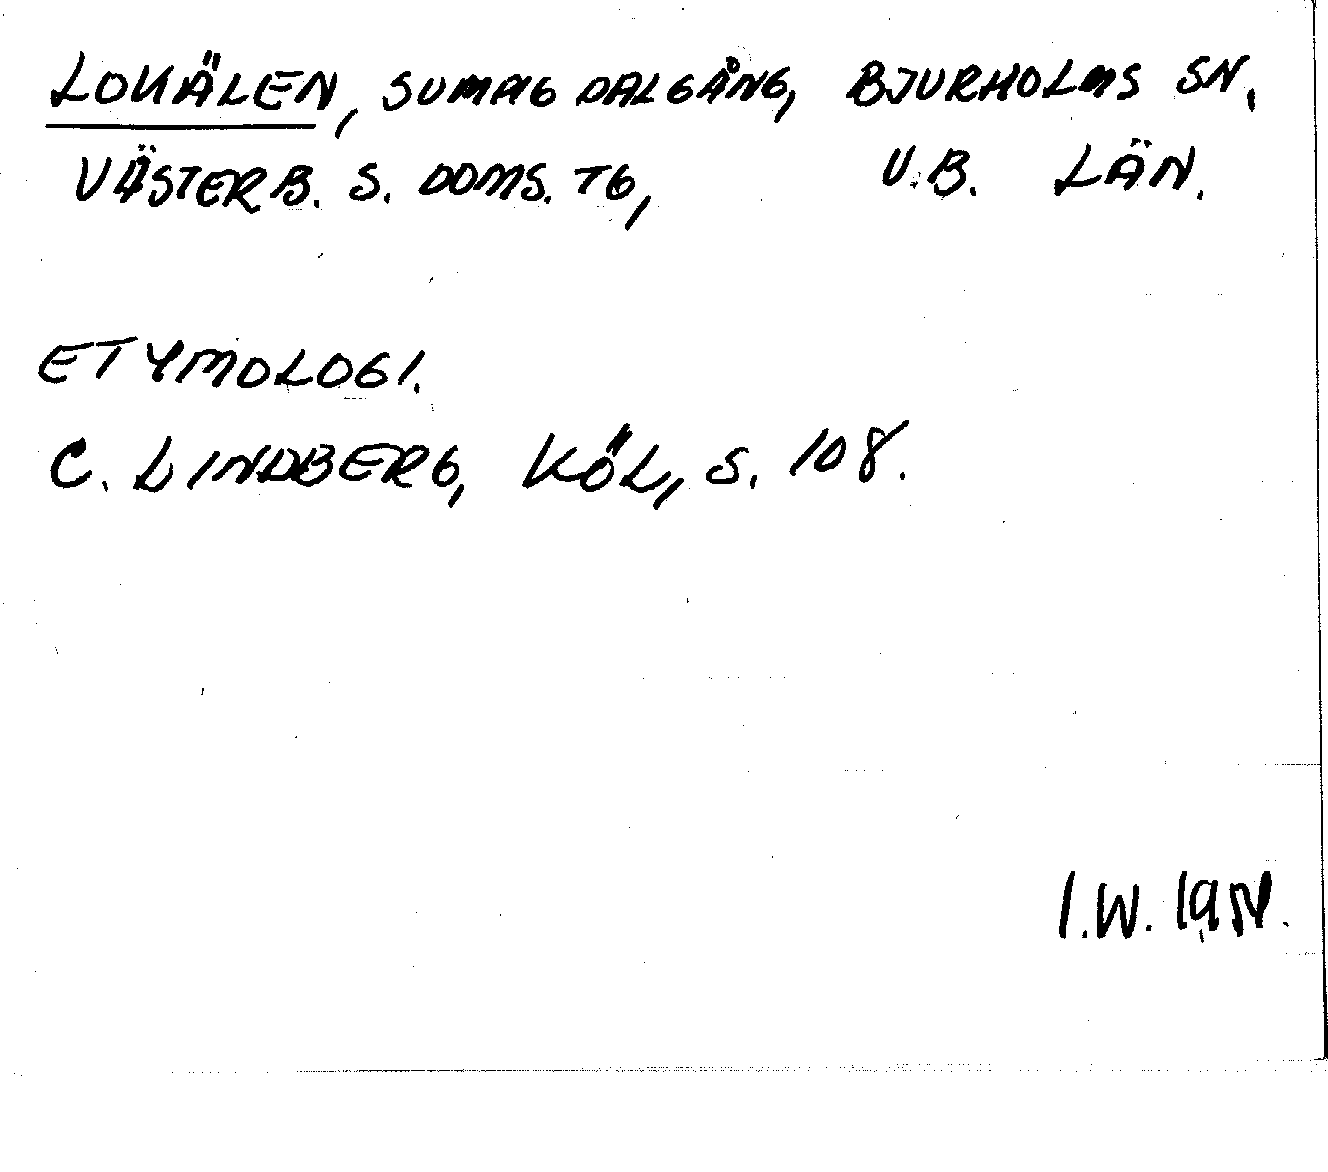 LOKÄLEN, SUMPIG DALGÅNG, BJURHOLMS SN.
VÄSTERB. S. DOMS. TG, V.B. LÄN.
ETYMOLOGI.
C. LINDBERG, KÖL, S. 108.
I.W.